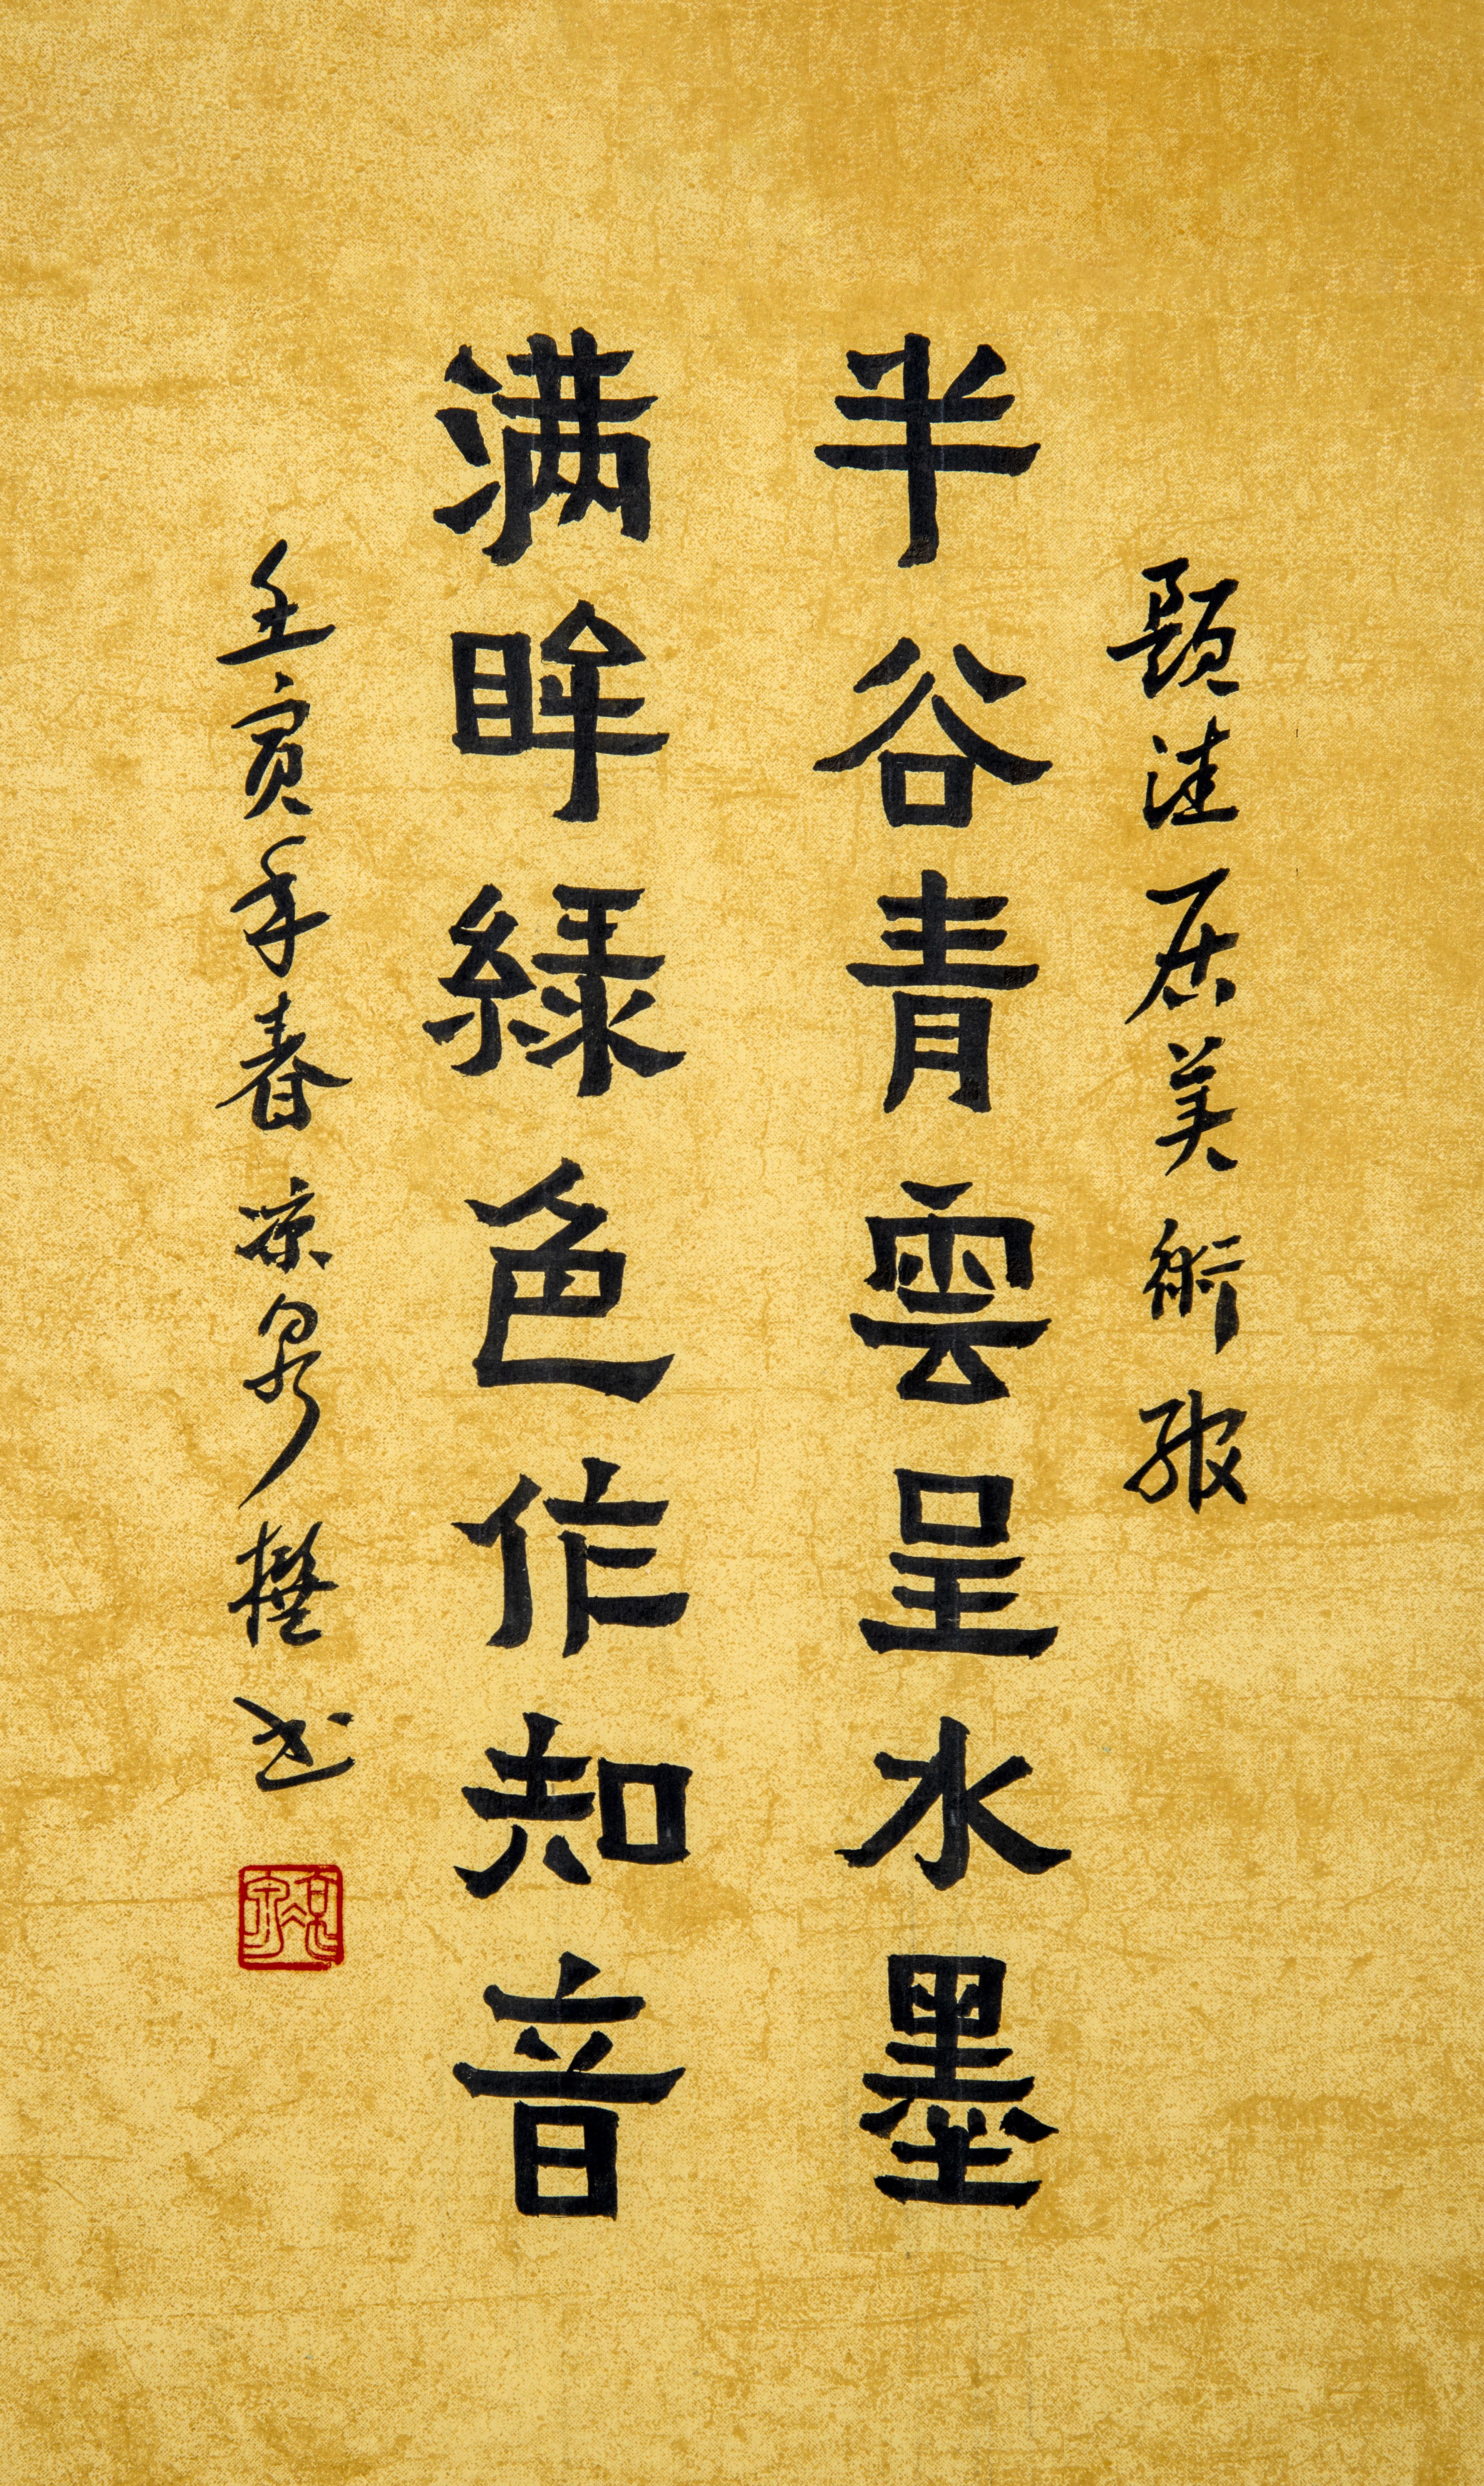 题洼居美術馆
半谷青雲呈水墨
满眸緑色作知音
壬寅年春凉泉撰书